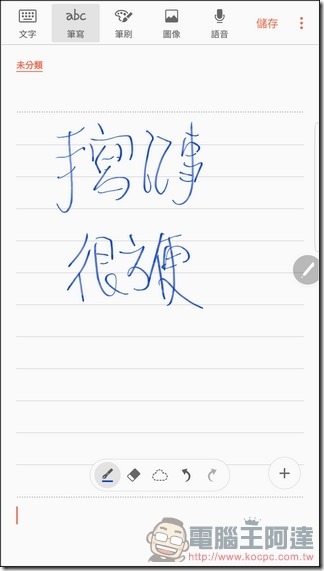 abc
文字 筆寫 筆刷 圖像 語音 儲存
未分類
手寫記事
很方便
電腦王阿達
http://www.kocpc.com.tw